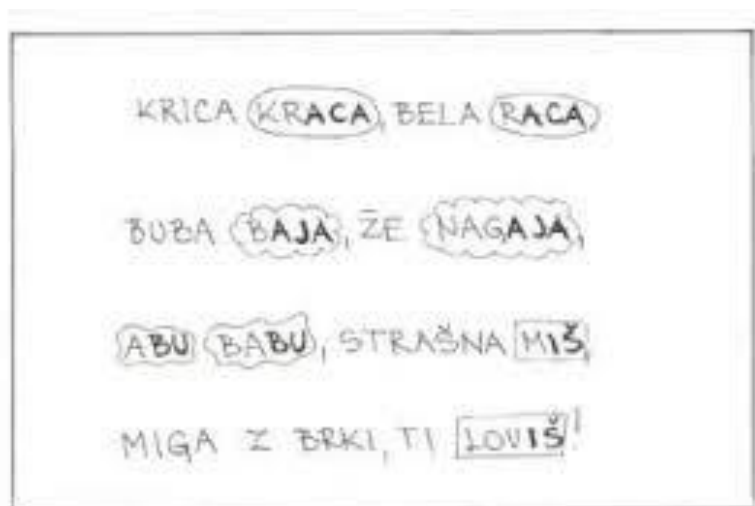 KRICA KRACA, BELA RACA,
BUBA BAJA, ŽE NAGAJA,
ABU BABU, STRAŠNA MIŠ,
MIGA Z BRKI, TI LOVIŠ!